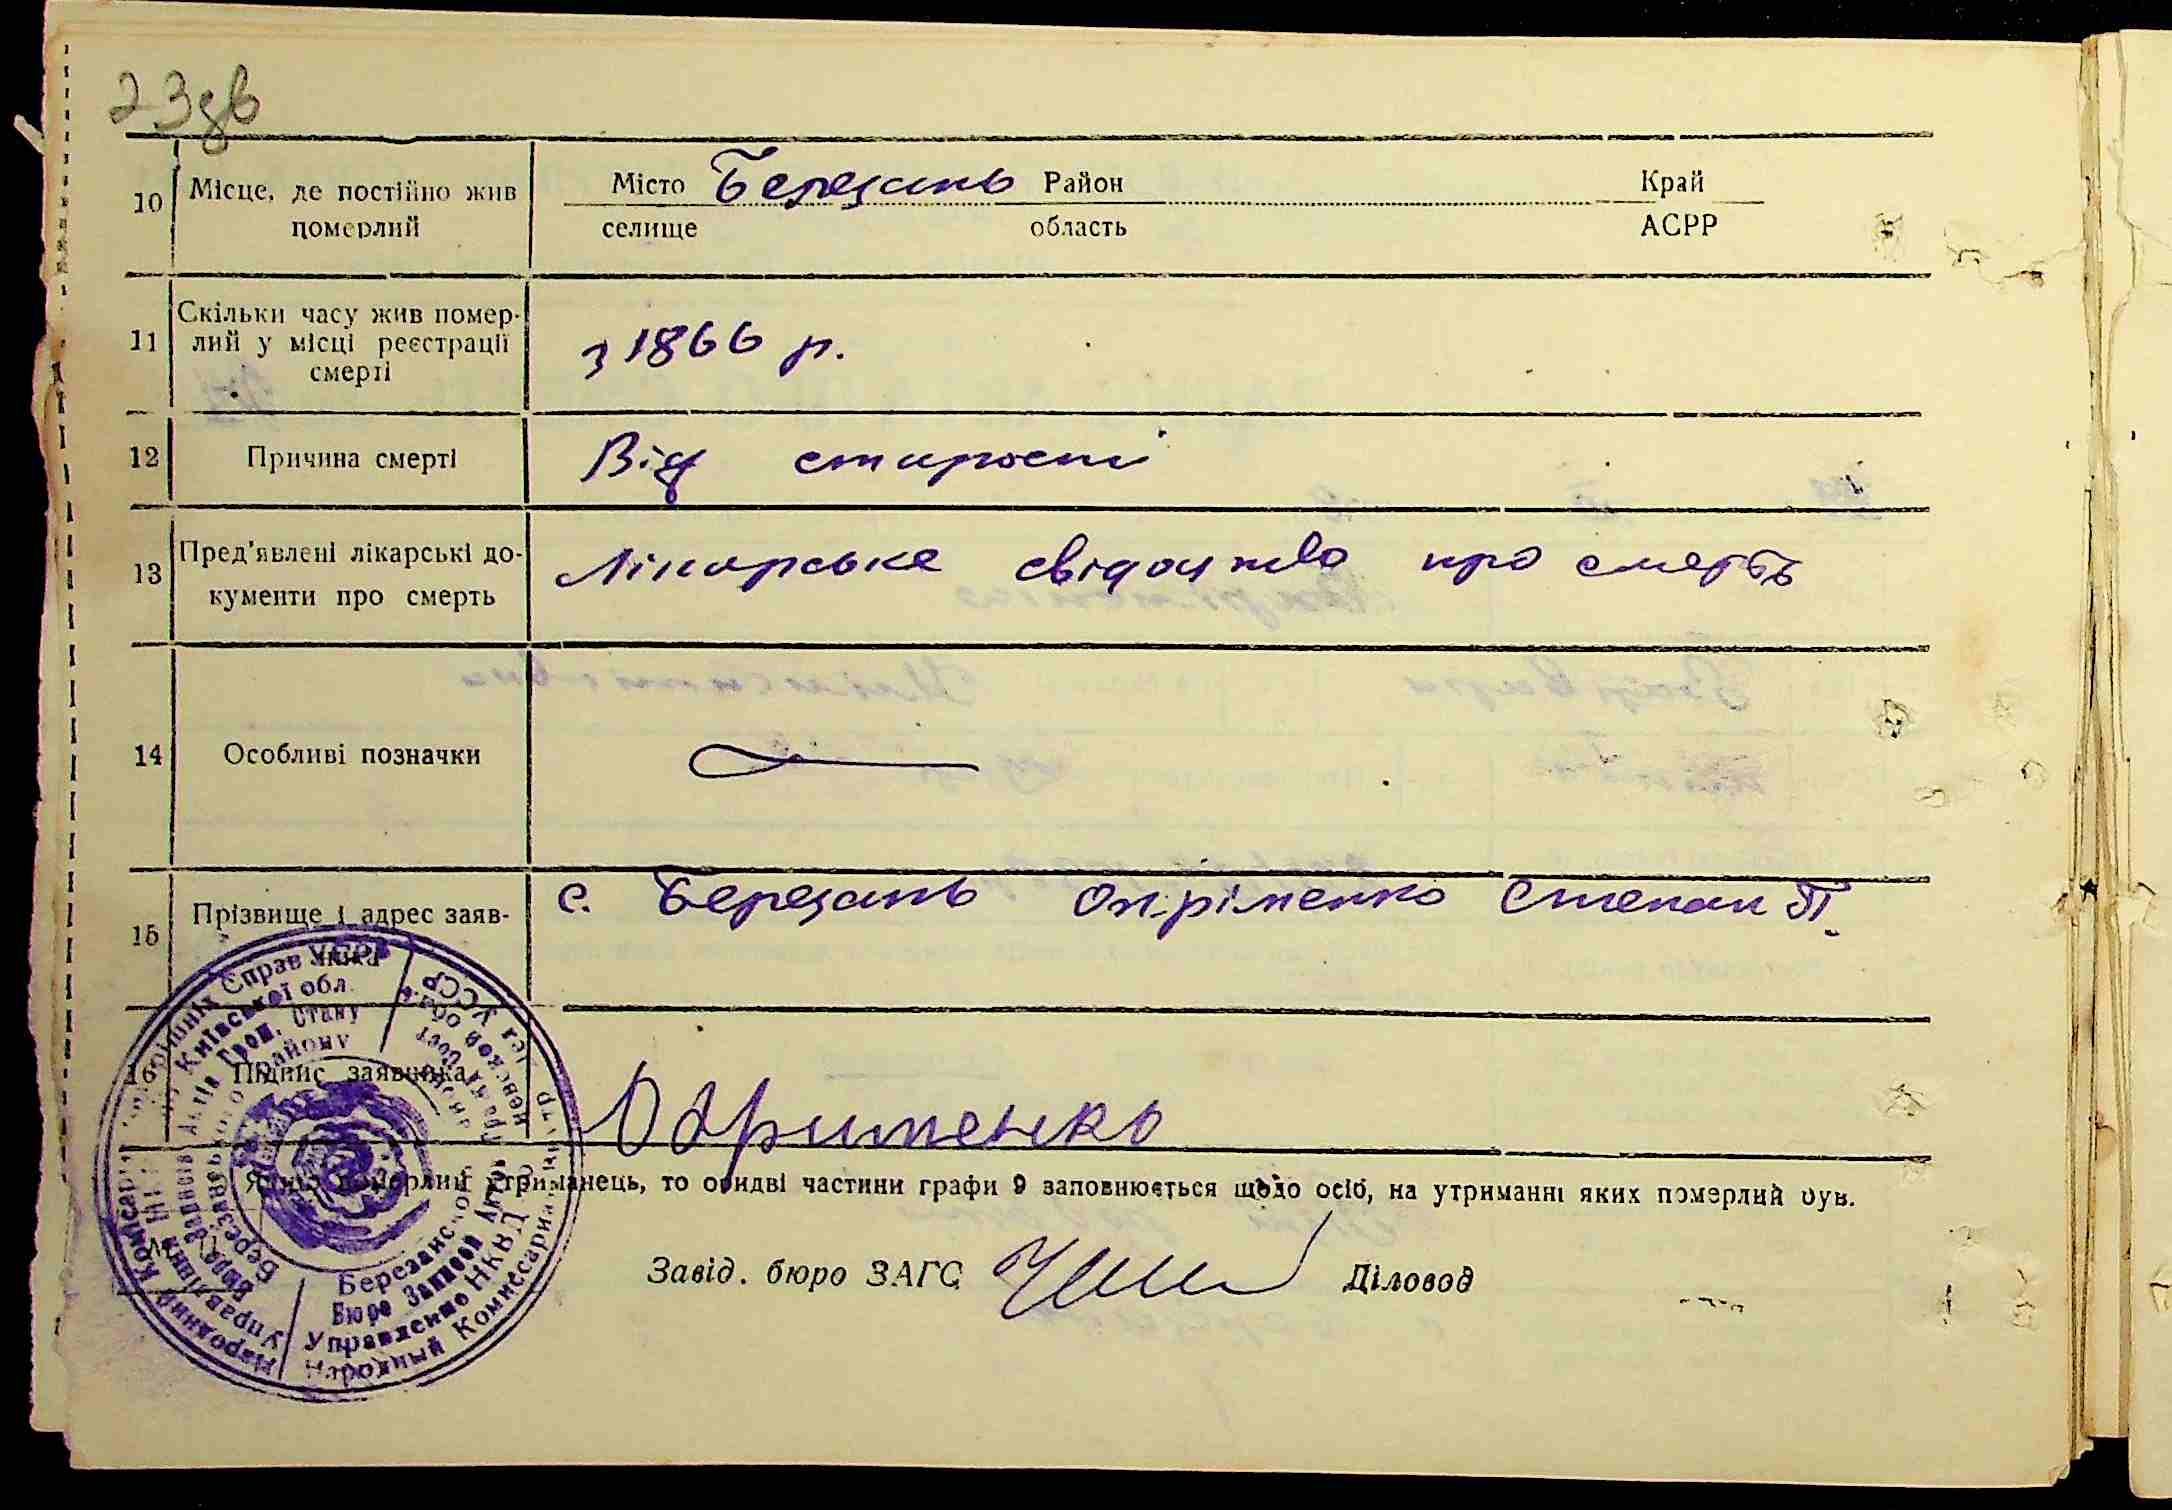 23зв
10 Місце, де постійно жив Місто Березань Район Край
померлий селище область АСРР
11 Скільки часу жив помер-
лий у місці реєстрації з 1866 р.
смерті
12 Причина смерті Від старості
13 Пред'явлені лікарські до- Лікарське свідоцтво про смерть
кументи про смерть
14 Особливі позначки
15 Прізвище і адрес заяв- с. Березань Охріменко Степан П.
ника
16 Підпис заявника Охрименко
Якщо померлий утриманець, то обидві частини графи 9 заповнюється щодо осіб, на утриманні яких померлий був.
Завід. бюро ЗАГС Діловод
Народний Комісаріат Внутрішніх Справ УСРР
Управління Київської обл.
Бюро Записів Актів Гром. Стану
Березанського Району
Березанского
Бюро Записей Актов
Управление НКВД
Народный Комиссариат